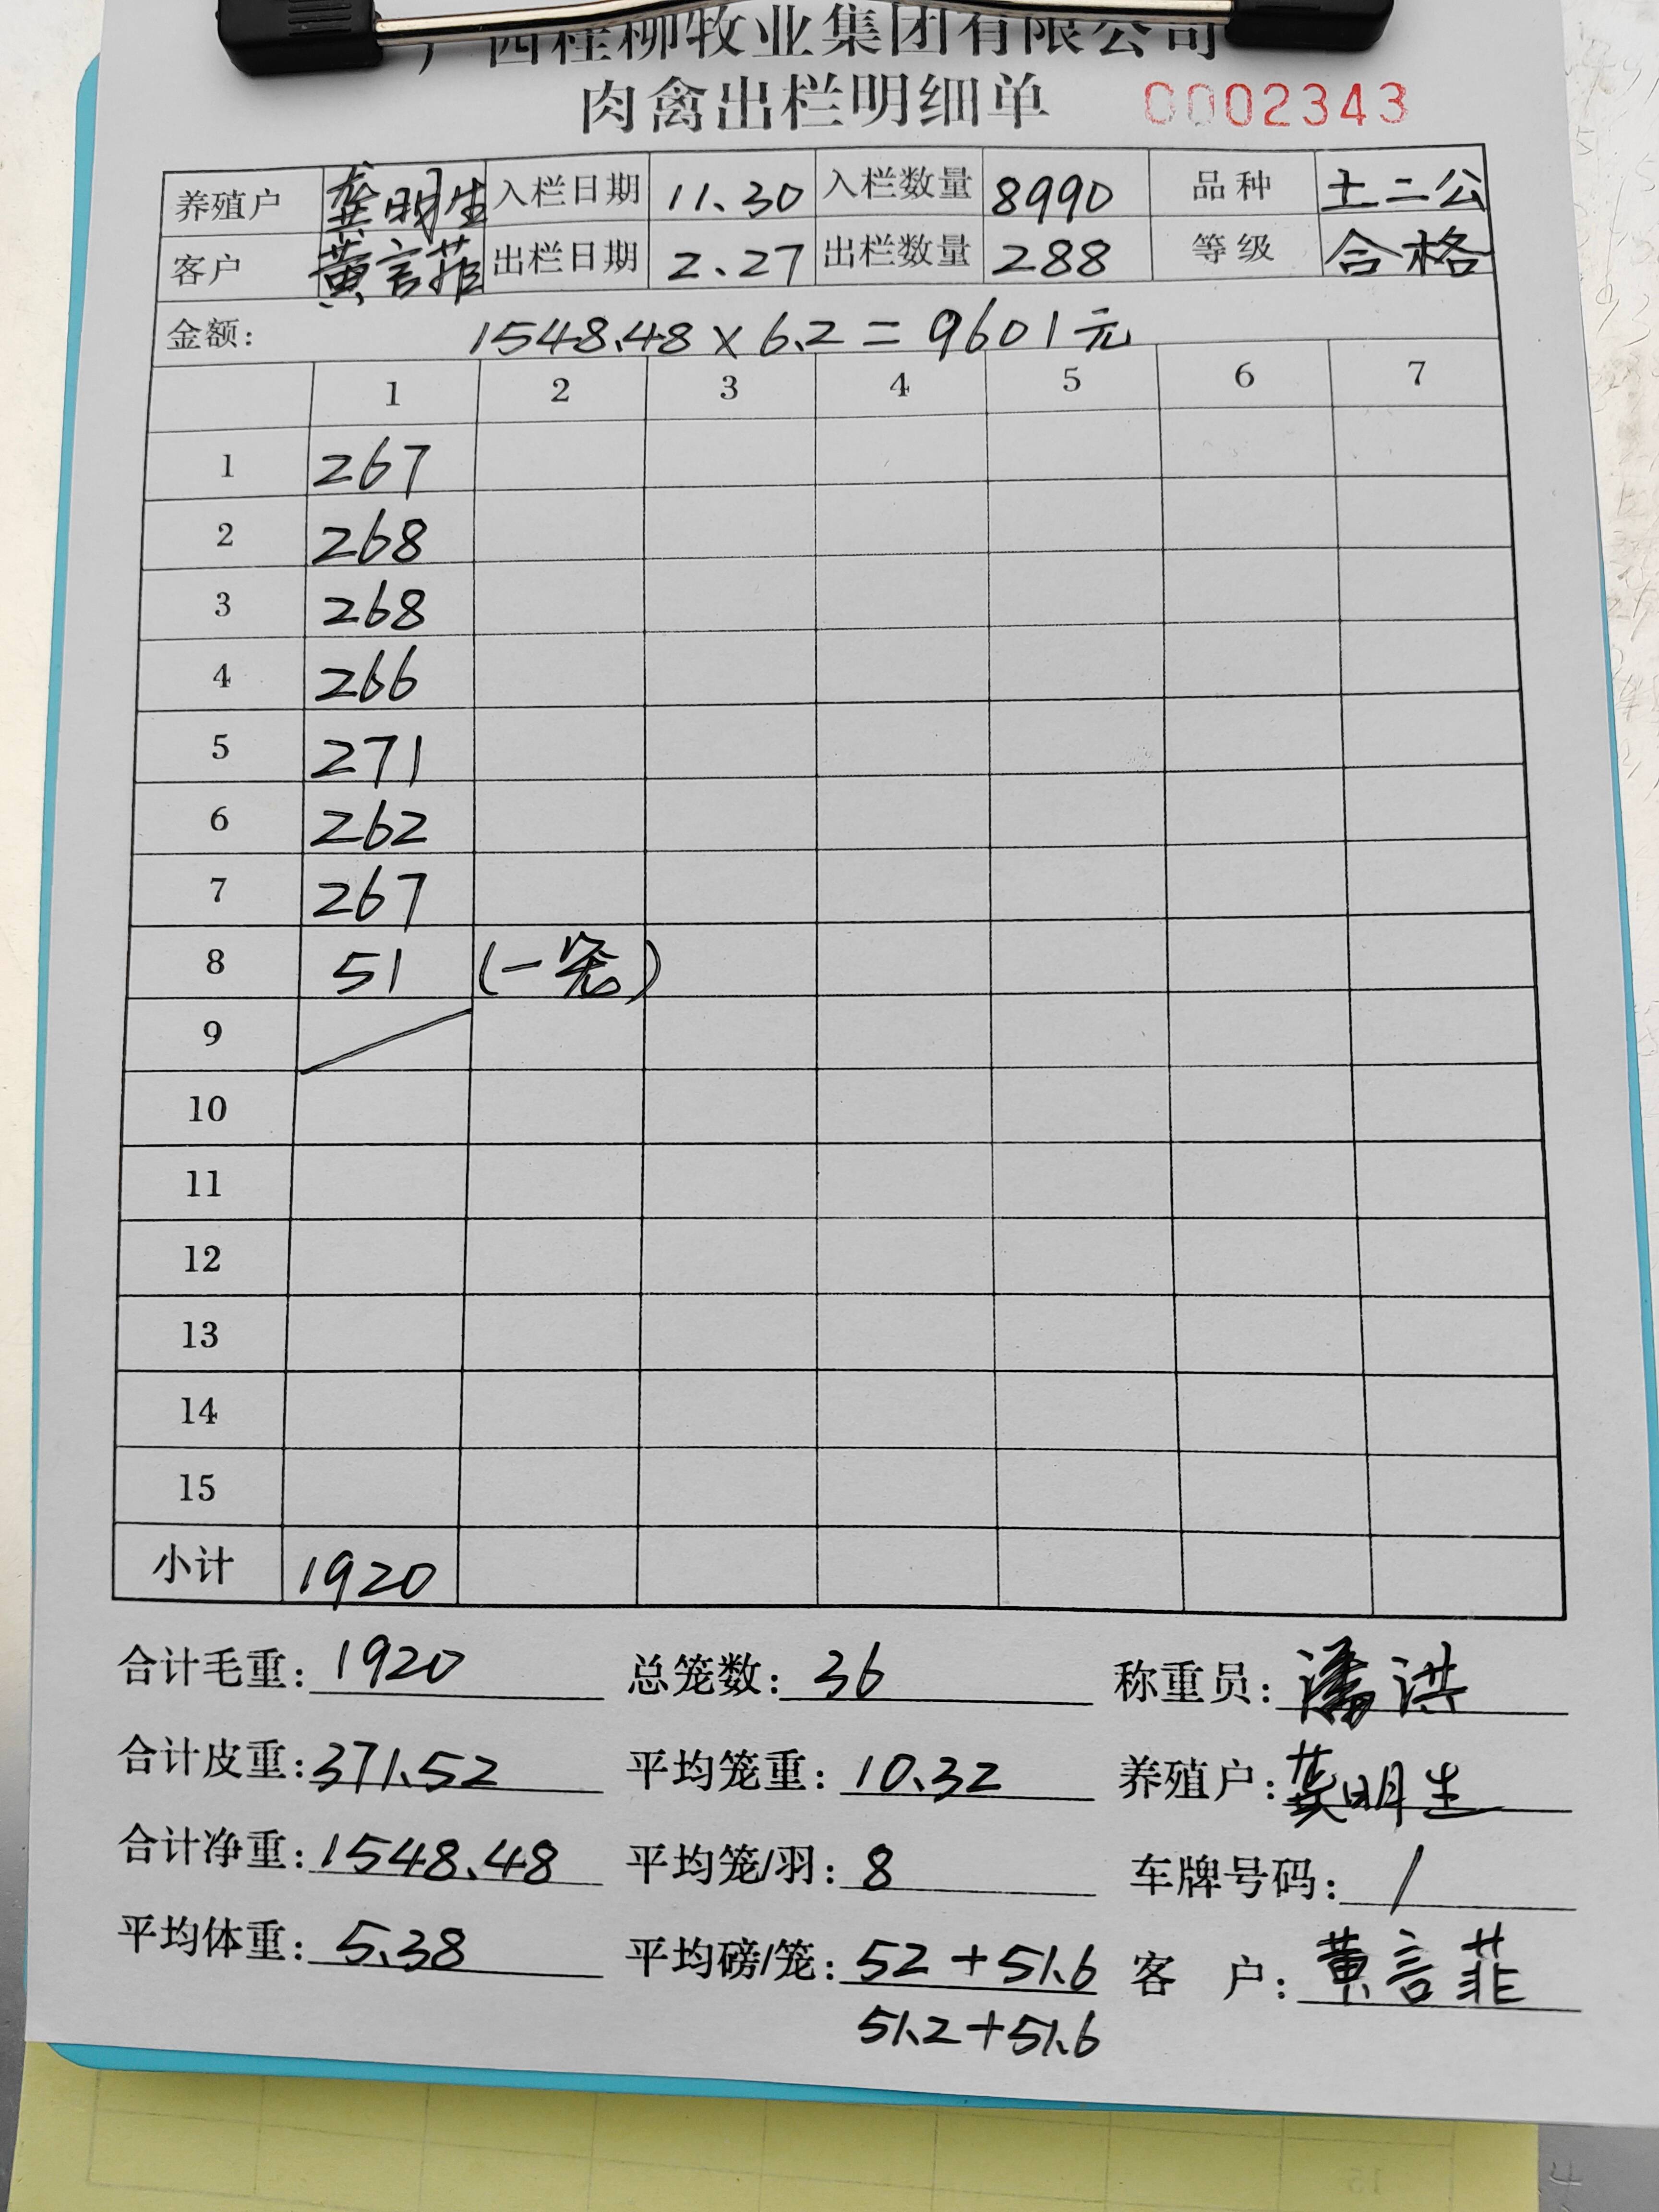 广西桂柳牧业集团有限公司
肉禽出栏明细单 0002343
养殖户 龚明生 入栏日期 11.30 入栏数量 8990 品种 土二公
客户 黄言菲 出栏日期 2.27 出栏数量 288 等级 合格
金额: 1548.48 × 6.2 = 9601元
1 2 3 4 5 6 7
1 267
2 268
3 268
4 266
5 271
6 262
7 267
8 51 (一笼)
9
10
11
12
13
14
15
小计 1920
合计毛重: 1920 总笼数: 36 称重员: 潘洪
合计皮重: 371.52 平均笼重: 10.32 养殖户: 龚明生
合计净重: 1548.48 平均笼/羽: 8 车牌号码: /
平均体重: 5.38 平均磅/笼: 52+51.6 客户: 黄言菲
51.2+51.6